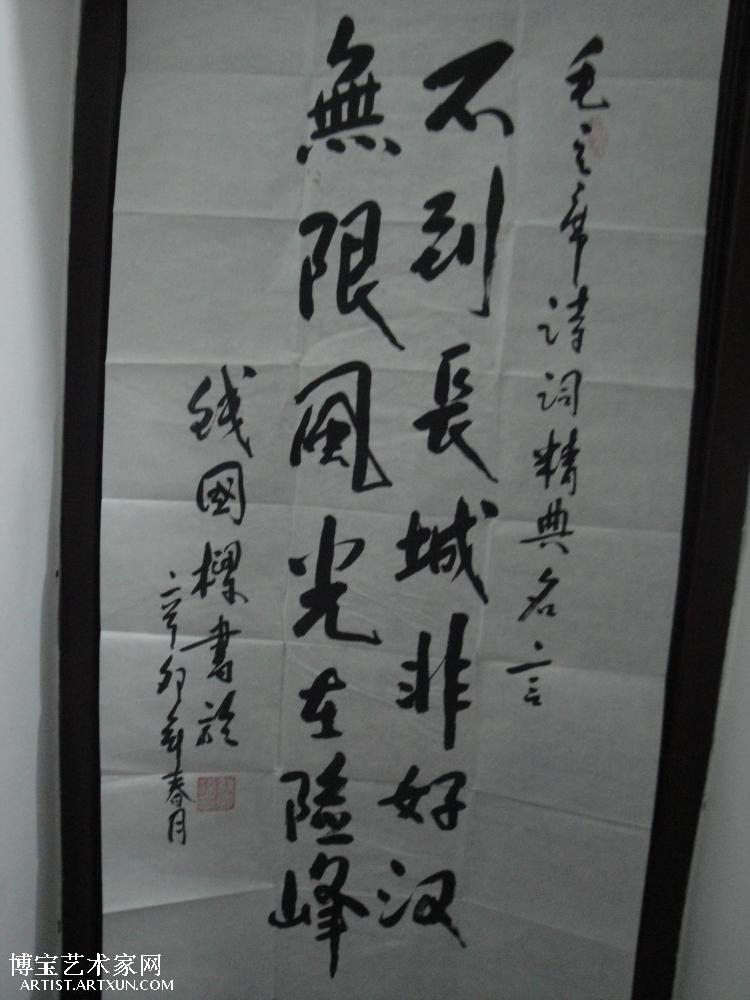 毛主席诗词精典名言
不到長城非好汉
無限風光在险峰
钱國樑書於
辛卯年春月
博宝艺术家网
ARTIST.ARTXUN.COM